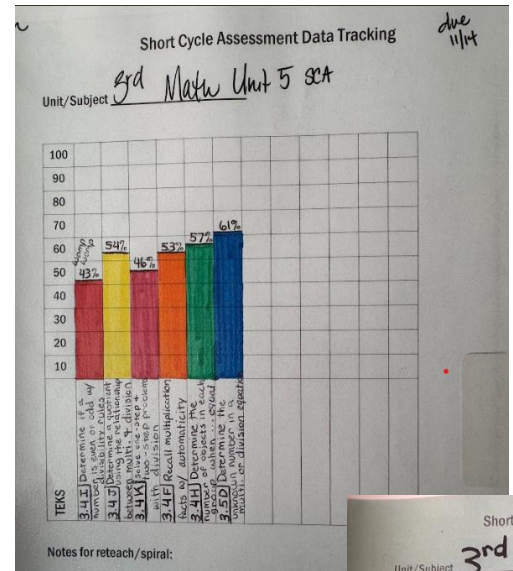 due
11/14
Short Cycle Assessment Data Tracking
Unit/Subject 3rd Math Unit 5 SCA
100
90
80
70
60
50
40
30
20
10
womp
womp
43%
54%
46%
53%
57%
61%
TEKS
3.4I Determine if a
number is even or odd w/
divisibility rules
3.4J Determine a quotient
using the relationship
between multi. & division
3.4K Solve one-step &
two-step problems
with division
3.4F Recall multiplication
facts w/ automaticity
3.4H Determine the
number of objects in each
group when ... equal
3.5D Determine the
unknown number in a
multi. or division equation
Notes for reteach/spiral:
Short
Unit/Subject 3rd